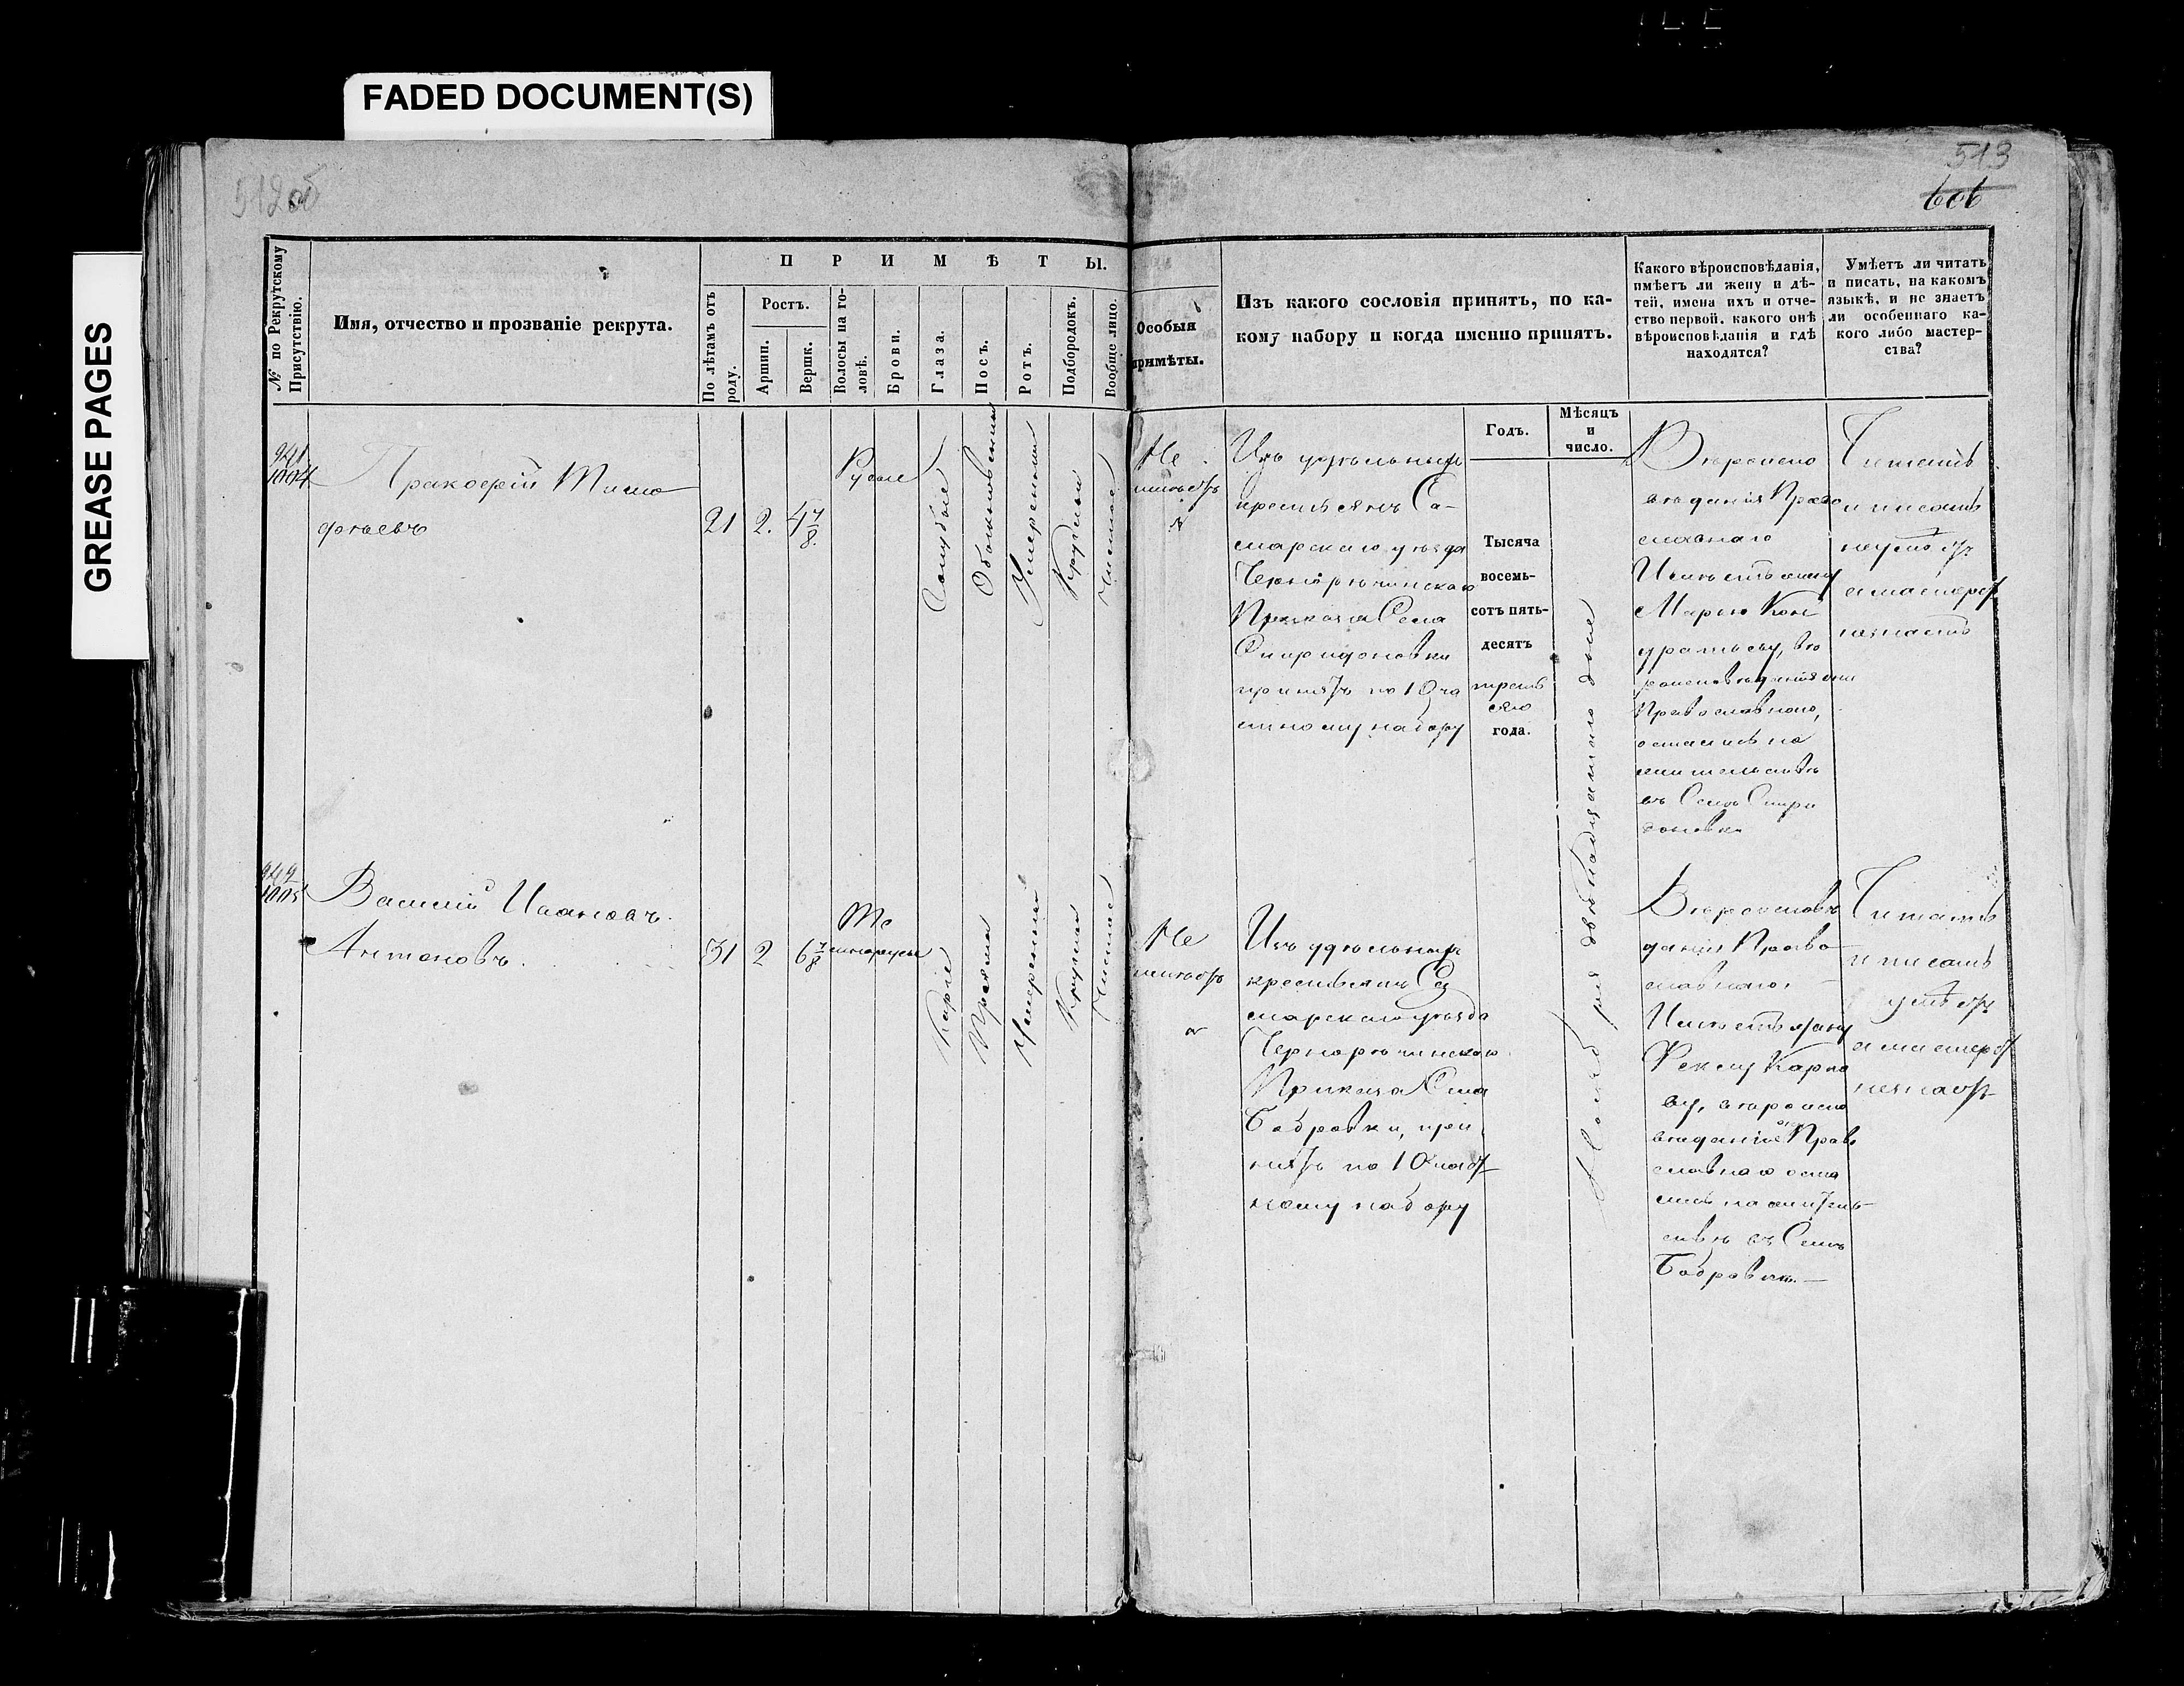 FADED DOCUMENT(S)
GREASE PAGES
512об
513
606
№ по Рекрутскому Присутствію.
Имя, отчество и прозваніе рекрута.
ПРИМѢТЫ.
По лѣтамъ отъ роду.
Ростъ.
Аршин.
Вершк.
Волосы на головѣ.
Брови.
Глаза.
Носъ.
Ротъ.
Подбородокъ.
Вообще лицо.
Особыя
примѣты.
Изъ какого сословія принятъ, по ка-
кому набору и когда именно принятъ.
Какого вѣроисповѣданія,
имѣетъ ли жену и дѣ-
тей, имена ихъ и отче-
ство первой, какого онѣ
вѣроисповѣданія и гдѣ
находятся?
Умѣетъ ли читать
и писать, на какомъ
языкѣ, и не знаетъ
ли особеннаго ка-
кого либо мастер-
ства?
Годъ.
Мѣсяцъ
и
число.
941
1004
Пракофій Тимо
фѣевъ
21
2.
4 7/8.
Русые
Голубые
Обыкновенный
Умеренный
Круглый
Чистое
Не
имѣетъ
Изъ удѣльныхъ
крестьянъ Са-
марскаго уѣзда
Чернорѣчинскаго
Приказа Села
Спиридоновки
принятъ по 10 ча
стному набору
Тысяча
восемь-
сотъ пять-
десятъ
третьяго
года.
Ноября двѣнадцатаго дня
Вѣроиспо
вѣданія Право
славнаго
Имѣетъ жену
Марью Кон
дратьеву, вѣ
роисповѣданія она
Православнаго,
осталась на
жительствѣ
въ Селѣ Спири
доновке
Читать
и писать
неумѣетъ
а мастерст
незнаетъ
942
1005
Василій Ивановъ
Антоновъ.
31
2
6 7/8
Те
мнорусые
Каріе
Прямой
Умеренный
Круглый
Чистое
Не
имѣетъ
Изъ удѣльныхъ
крестьянъ Са
марскаго уѣзда
Чернорѣчинскаго
Приказа Села
Бобровки, при
нятъ по 10 част
ному набору
Вѣроисповѣ
данія Право
славнаго,
Имѣетъ жену
Феклу Карпо
ву, вѣроиспо
вѣданія она Право
славнаго оста
лась на житель
ствѣ въ Селѣ
Бобровкѣ.—
Читать
и писать
умѣетъ
а мастерст
незнаетъ